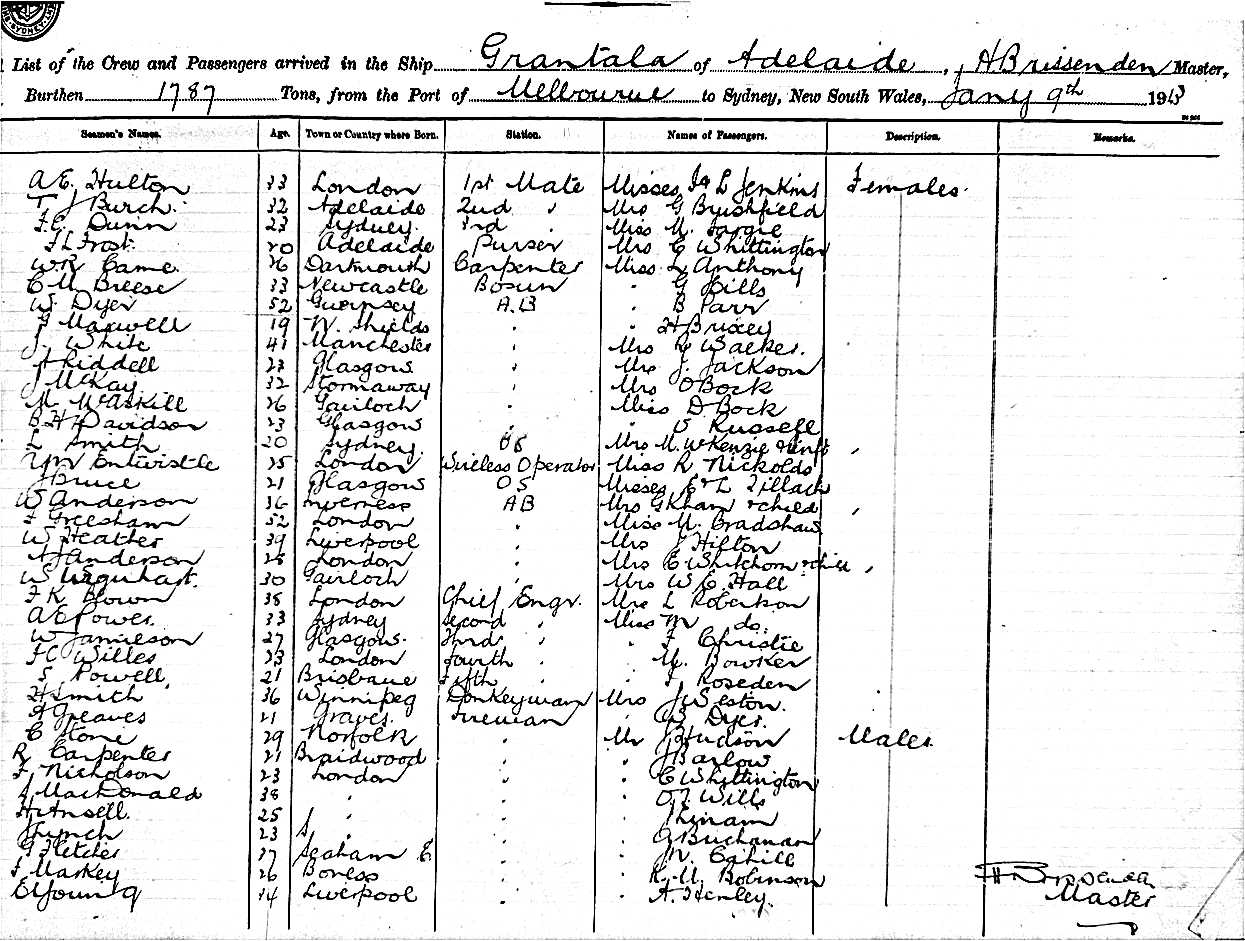 List of the Crew and Passengers arrived in the Ship Grantala of Adelaide, H Brissenden Master,
Burthen 1787 Tons, from the Port of Melbourne to Sydney, New South Wales, Jany 9th 1913
Seamen's Names. Age. Town or Country where Born. Station. Names of Passengers. Description. Remarks.
A E Hulton 33 London 1st Mate Misses L Jenkins Females.
T J Burch. 32 Adelaide 2nd " Mrs G Brushfield
F C Dunn 23 Sydney. 3rd " Miss M.
F L Frost. 20 Adelaide Purser Mrs C Whittington
W R Came. 26 Dartmouth Carpenter Miss L Anthony
C M Breese 33 Newcastle Bosun " G Hills
W. Dyer 52 Guernsey A.B " B Parr
Maxwell 19 N. Shields " " H Brixey
J. White 41 Manchester " Mrs Walker.
A Riddell 23 Glasgow " Mrs J. Jackson
J McKay 32 Stornaway " Mrs O Bock
M McAskill 26 Gairloch " Miss D Bock
B H Davidson 23 Glasgow " " Russell
L Smith 20 Sydney. OS Mrs M. McKenzie
Entwistle 25 London Wireless Operator Miss R Nickolds
J Bruce 21 Glasgow OS Misses E & L Zillach
W Anderson 36 Inverness AB Mrs G Kham & child "
Greesham 52 London " Miss M. Bradshaw
W Heather 39 Liverpool " Mrs Hilton
A Anderson 28 London " Mrs E Whitchom & child "
W Urquhart. 30 Gairloch " Mrs W C Hall
F K Blown 38 London Chief Engr. Mrs L Robertson
A E Power. 33 Sydney Second " Miss M do.
W Jamieson 27 Glasgow. Third " " F Christie
F C Willes 33 London Fourth " " M. Bowker
S. Powell, 21 Brisbane Fifth " " Roseden
H Smith 36 Winnipeg Donkeyman Mrs J Weston.
Greaves 21 Graves. Fireman " W Dyer.
C Stone 29 Norfolk " Mr J Hudson Males.
R Carpenter 21 Braidwood " " J Barlow
F. Nicholson 23 London " " C Whittington
MacDonald 38 " " " O J Wills
H Ansell. 25 " " "
J Lynch 23 " " " G Buchanan
Fletcher 37 Seaham " " Cahill
J Markey 26 Boness " " R. M. Robinson
E Young 24 Liverpool " " A. Henley.
H Brissenden
Master